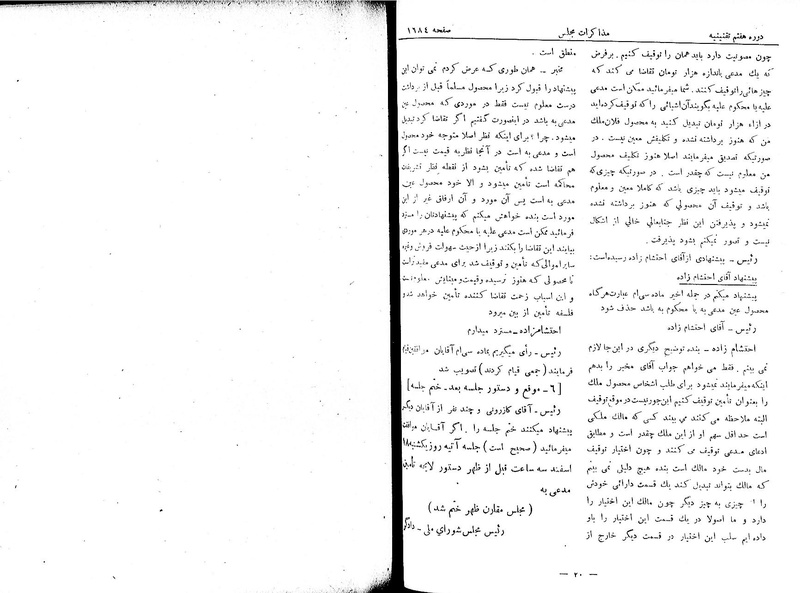 دوره هفتم تقنینیه
مذاکرات مجلس
صفحه ۱۶۸۴
چون مصونیت دارد باید همان را توقیف کنیم . برفرض
که یك مدعی باندازه هزار تومان تقاضا می کنند که
چیزهائی را توقیف کنند . شما میفرمائید ممکن است مدعی
علیه یا محکوم علیه بگویند آن اشیائی را که توقیف کرده اید
در ازاء هزار تومان تبدیل کنید به محصول فلان ملك
من که هنوز برداشته نشده و تکلیفش معین نیست . در
صورتیکه تصدیق میفرمایند اصلا هنوز تکلیف محصول
من معلوم نیست که چقدر است . در صورتیکه چیزی که
توقیف میشود باید چیزی باشد که کاملا معین و معلوم
باشد و توقیف آن محصولی که هنوز برداشته نشده
نمیشود و پذیرفتن این نظر جنابعالی خالی از اشکال
نیست و تصور نمیکنم بشود پذیرفت .
رئیس ـ پیشنهادی از آقای احتشام زاده رسیده است:
پیشنهاد آقای احتشام زاده
پیشنهاد میکنم در جمله اخیر ماده سی‌ام عبارت هرگاه
محصول عین مدعی به یا محکوم به باشد حذف شود
رئیس ـ آقای احتشام زاده
احتشام زاده ـ بنده توضیح دیگری در این جا لازم
نمی بینم . فقط می خواهم جواب آقای مخبر را بدهم
اینکه میفرمایند نمیشود برای طلب اشخاص محصول ملك
را بعنوان تأمین توقیف کنیم این جور نیست در موقع توقیف
البته ملاحظه می کنند می بینند کسی که مالك ملکی
است حداقل سهم او از این ملك چقدر است و مطابق
ادعای مدعی توقیف می کنند و چون اختیار توقیف
مال بدست خود مالك است بنده هیچ دلیلی نمی بینم
که مالك بتواند تبدیل کند یك قسمت دارائی خودش
را به چیزی به چیز دیگر چون مالك این اختیار را
دارد و ما اصولا در یك قسمت این اختیار را باو
داده ایم سلب این اختیار در قسمت دیگر خارج از
منطق است .
مخبر ـ همان طوری که عرض کردم نمی توان این
پیشنهاد را قبول کرد زیرا محصول مسلماً قبل از برداشت
درست معلوم نیست فقط در موردی که محصول عین
مدعی به باشد در اینصورت گفتیم اگر تقاضا کرد تبدیل
میشود . چرا ؟ برای اینکه نظر اصلا متوجه خود محصول
است و مدعی به است در آنجا نظر به قیمت نیست اگر
هم تقاضا شده که تأمین بشود از نقطه نظر تشریفات
محاکمه است تأمین میشود و الا خود محصول عین
مدعی به است پس آن مورد و آن ارفاق غیر از این
مورد است بنده خواهش میکنم که پیشنهادتان را مسترد
فرمائید ممکن است مدعی علیه یا محکوم علیه در هر موردی
بیایند این تقاضا را بکنند زیرا از حیث سهولت فروش وغیره
سایر اموالی که تأمین و توقیف شد برای مدعی مفیدتر است
تا محصولی که هنوز نرسیده و قیمت و میتنایش معلوم نیست
و این اسباب زحمت تقاضا کننده تأمین خواهد شد و
فلسفه تأمین از بین میرود
احتشام‌زاده ـ مسترد میدارم
رئیس ـ رأی میگیریم بماده سی‌ام آقایان موافقین قیام
فرمایند (جمعی قیام کردند) تصویب شد
[ ۶ ـ موقع و دستور جلسه بعد ـ ختم جلسه ]
رئیس ـ آقای کازرونی و چند نفر از آقایان دیگر
پیشنهاد میکنند ختم جلسه را . اگر آقایان موافقت
میفرمائید ( صحیح است ) جلسه آتیه روز یکشنبه ۱۸
اسفند سه ساعت قبل از ظهر دستور لایحه تأمین
مدعی به
( مجلس مقارن ظهر ختم شد )
رئیس مجلس شورای ملی ـ دادگر
ـ ۲۰ ـ